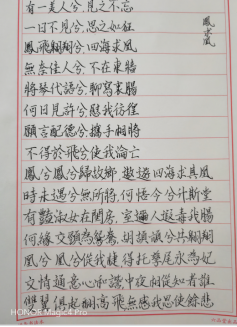 有一美人兮,見之不忘
一日不見兮,思之如狂
鳳飛翱翔兮,四海求凰
無奈佳人兮,不在東牆
將琴代語兮,聊寫衷腸
何日見許兮,慰我彷徨
願言配德兮,攜手相將
不得於飛兮使我淪亡
鳳兮鳳兮歸故鄉 遨遊四海求其凰
時未遇兮無所將,何悟今兮升斯堂
有艷淑女在閨房,室邇人遐毒我腸
何緣交頸為鴛鴦,胡頡頏兮共翱翔
凰兮凰兮從我棲得托孳尾永為妃
交情通意心和諧中夜相從知者誰
雙翼俱起翻高飛無感我思使余悲
鳳求凰
HONOR Magic4 Pro